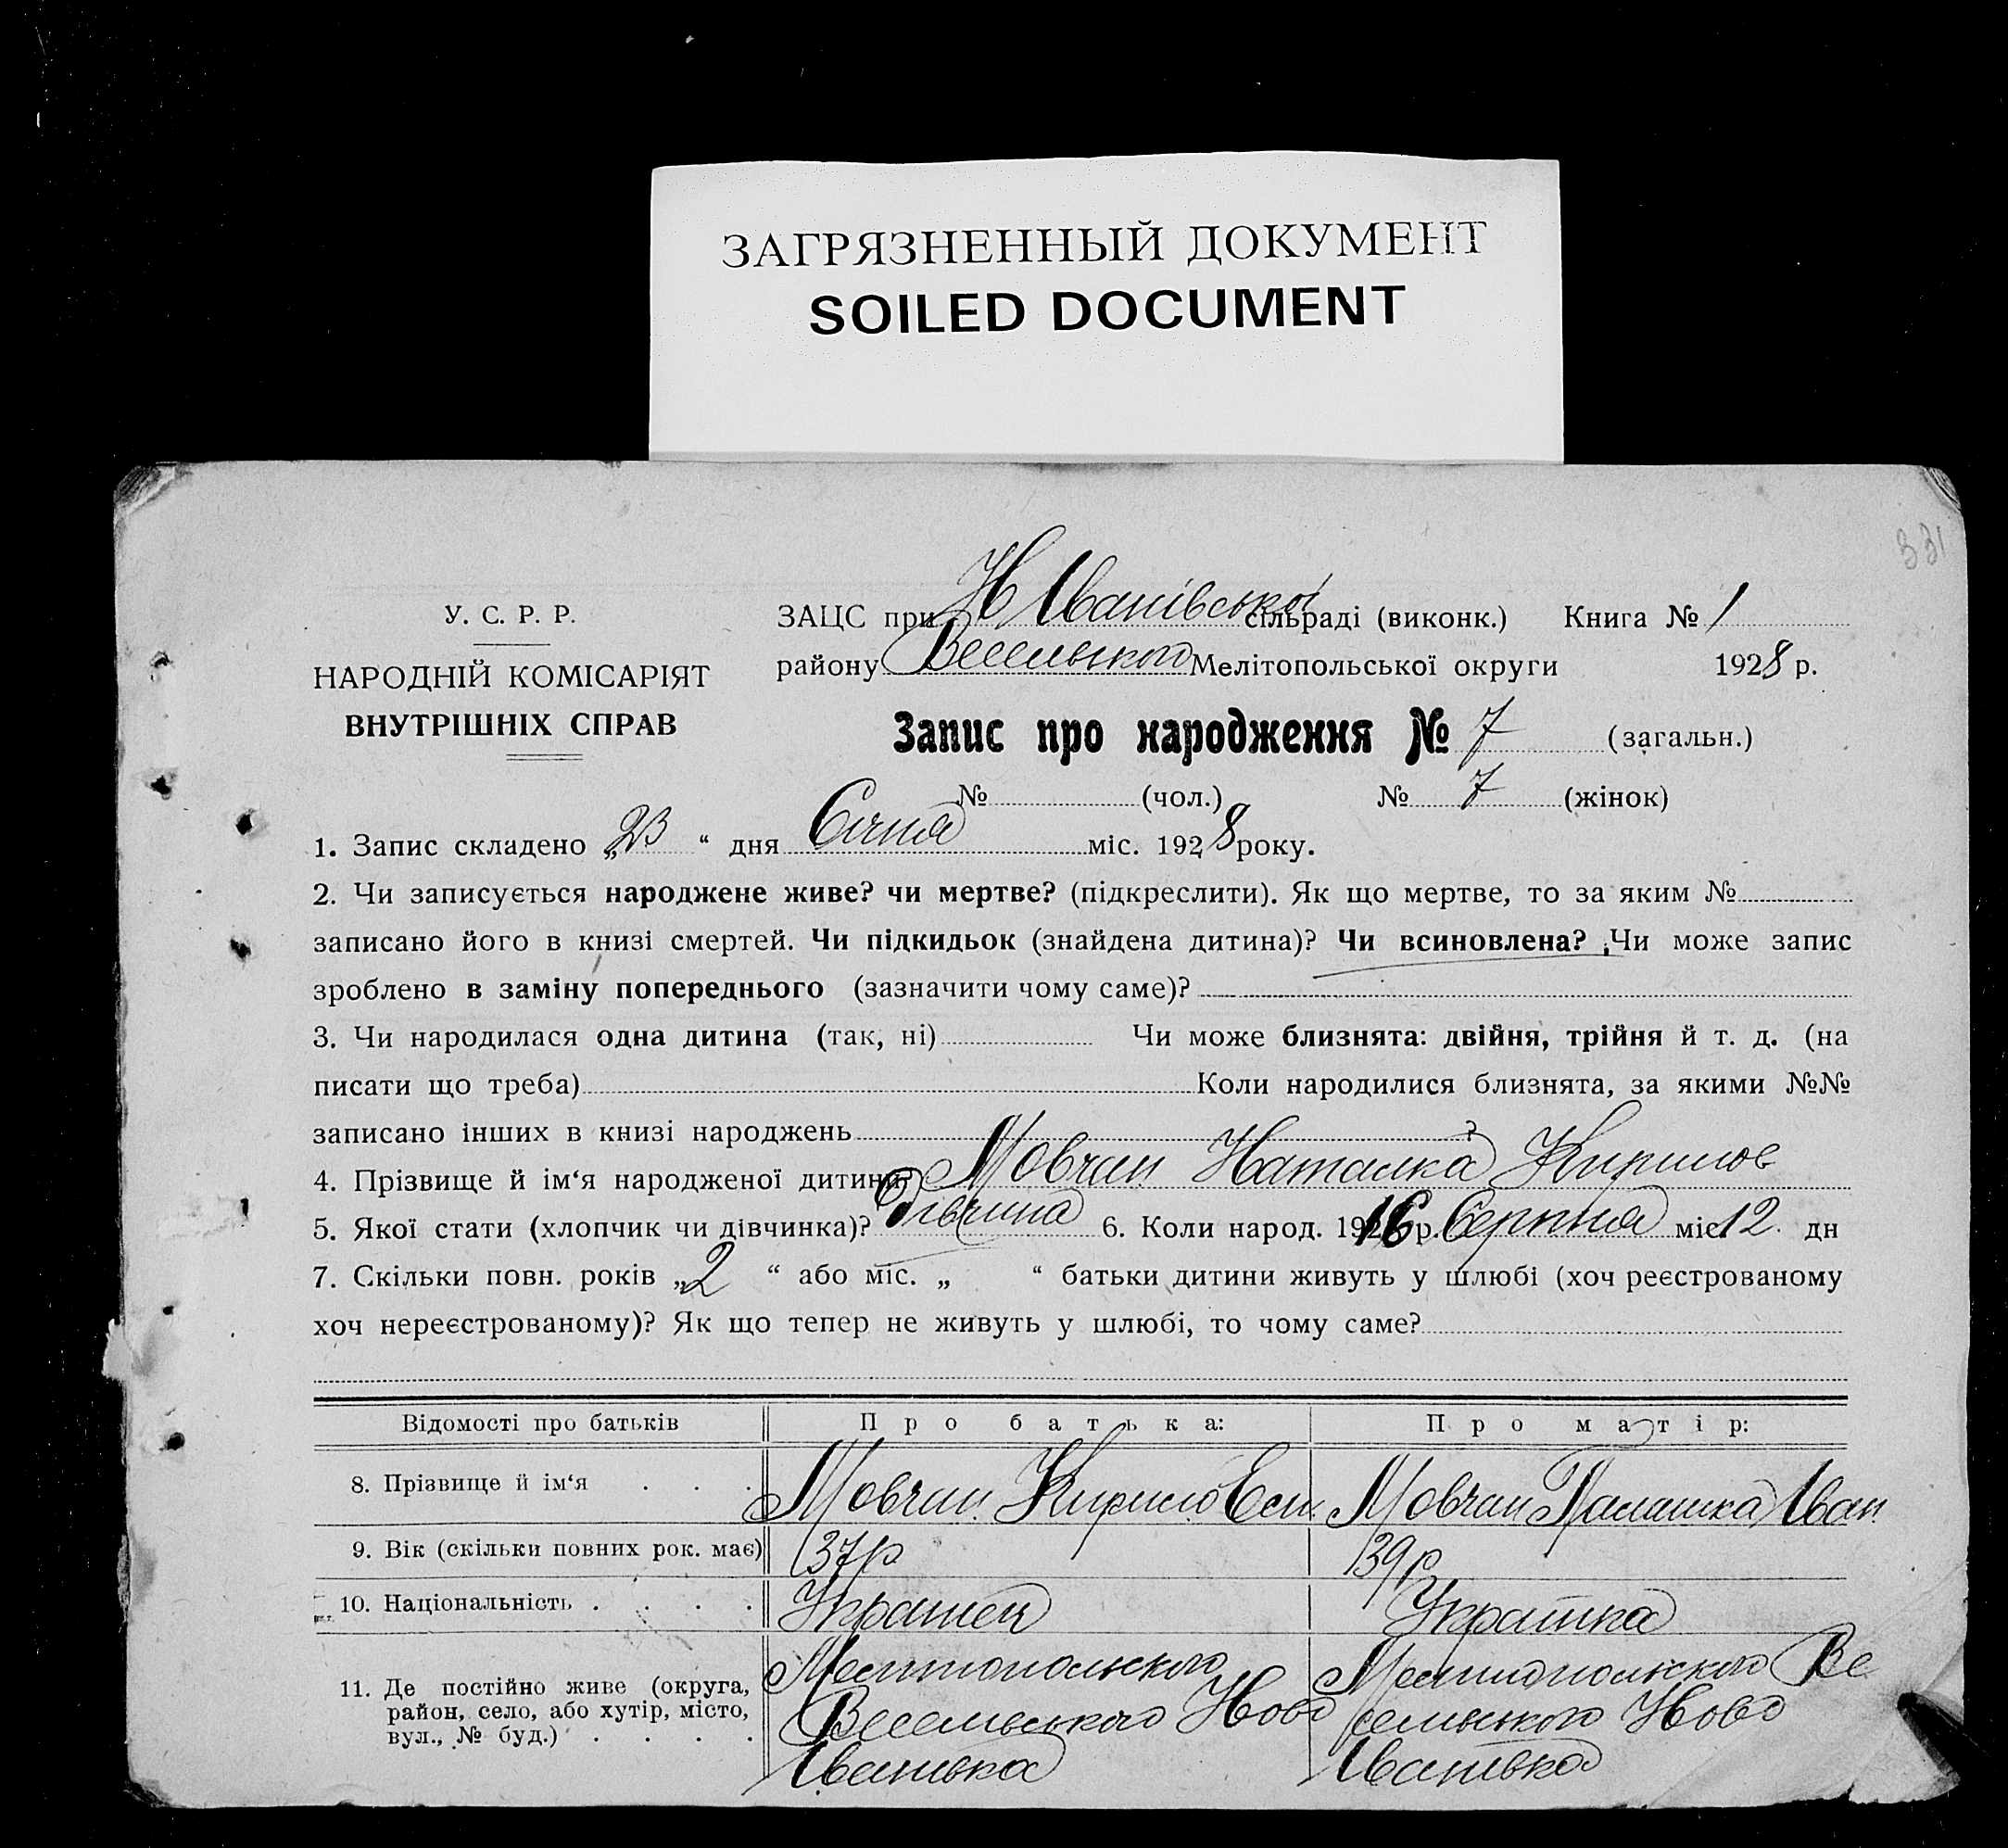 ЗАГРЯЗНЕННЫЙ ДОКУМЕНТ
SOILED DOCUMENT
331
У. С. Р. Р.
НАРОДНІЙ КОМІСАРІЯТ
ВНУТРІШНІХ СПРАВ
ЗАЦС при Н Іванівської сільраді (виконк.) Книга № 1
району Весельского Мелітопольської округи 1928 р.
Запис про народження № 7 (загальн.)
№ (чол.) № 7 (жінок)
1. Запис складено „23“ дня Січня міс. 1928 року.
2. Чи записується народжене живе? чи мертве? (підкреслити). Як що мертве, то за яким №
записано його в книзі смертей. Чи підкидьок (знайдена дитина)? Чи всиновлена? Чи може запис
зроблено в заміну попереднього (зазначити чому саме)?
3. Чи народилася одна дитина (так, ні) Чи може близнята: двійня, трійня й т. д. (на
писати що треба) Коли народилися близнята, за якими №№
записано інших в книзі народжень ?
4. Прізвище й ім‘я народженої дитини? Мовчан Наталка Кирилов
5. Якої стати (хлопчик чи дівчинка)? Дівчина 6. Коли народ. 1916 р. Серпня міс. 12 дн
7. Скільки повн. років „2“ або міс. „ “ батьки дитини живуть у шлюбі (хоч реєстрованому
хоч нереєстрованому)? Як що тепер не живуть у шлюбі, то чому саме?
Відомості про батьків Про батька: Про матір:
8. Прізвище й ім‘я . . . Мовчан Кирило Мовчан Палашка Іван
9. Вік (скільки повних рок. має) 37р 39р
10. Національність . . . . Українец Українка
11. Де постійно живе (округа, район, село, або хутір, місто, вул., № буд.) . . . .
Мелітопольского Весельського Ново Іванівка
Мелітопольского Весельського Ново Іванівка